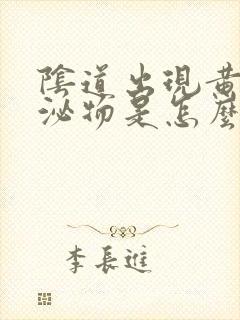 陰道出現黃
泌物是怎麼
李長進